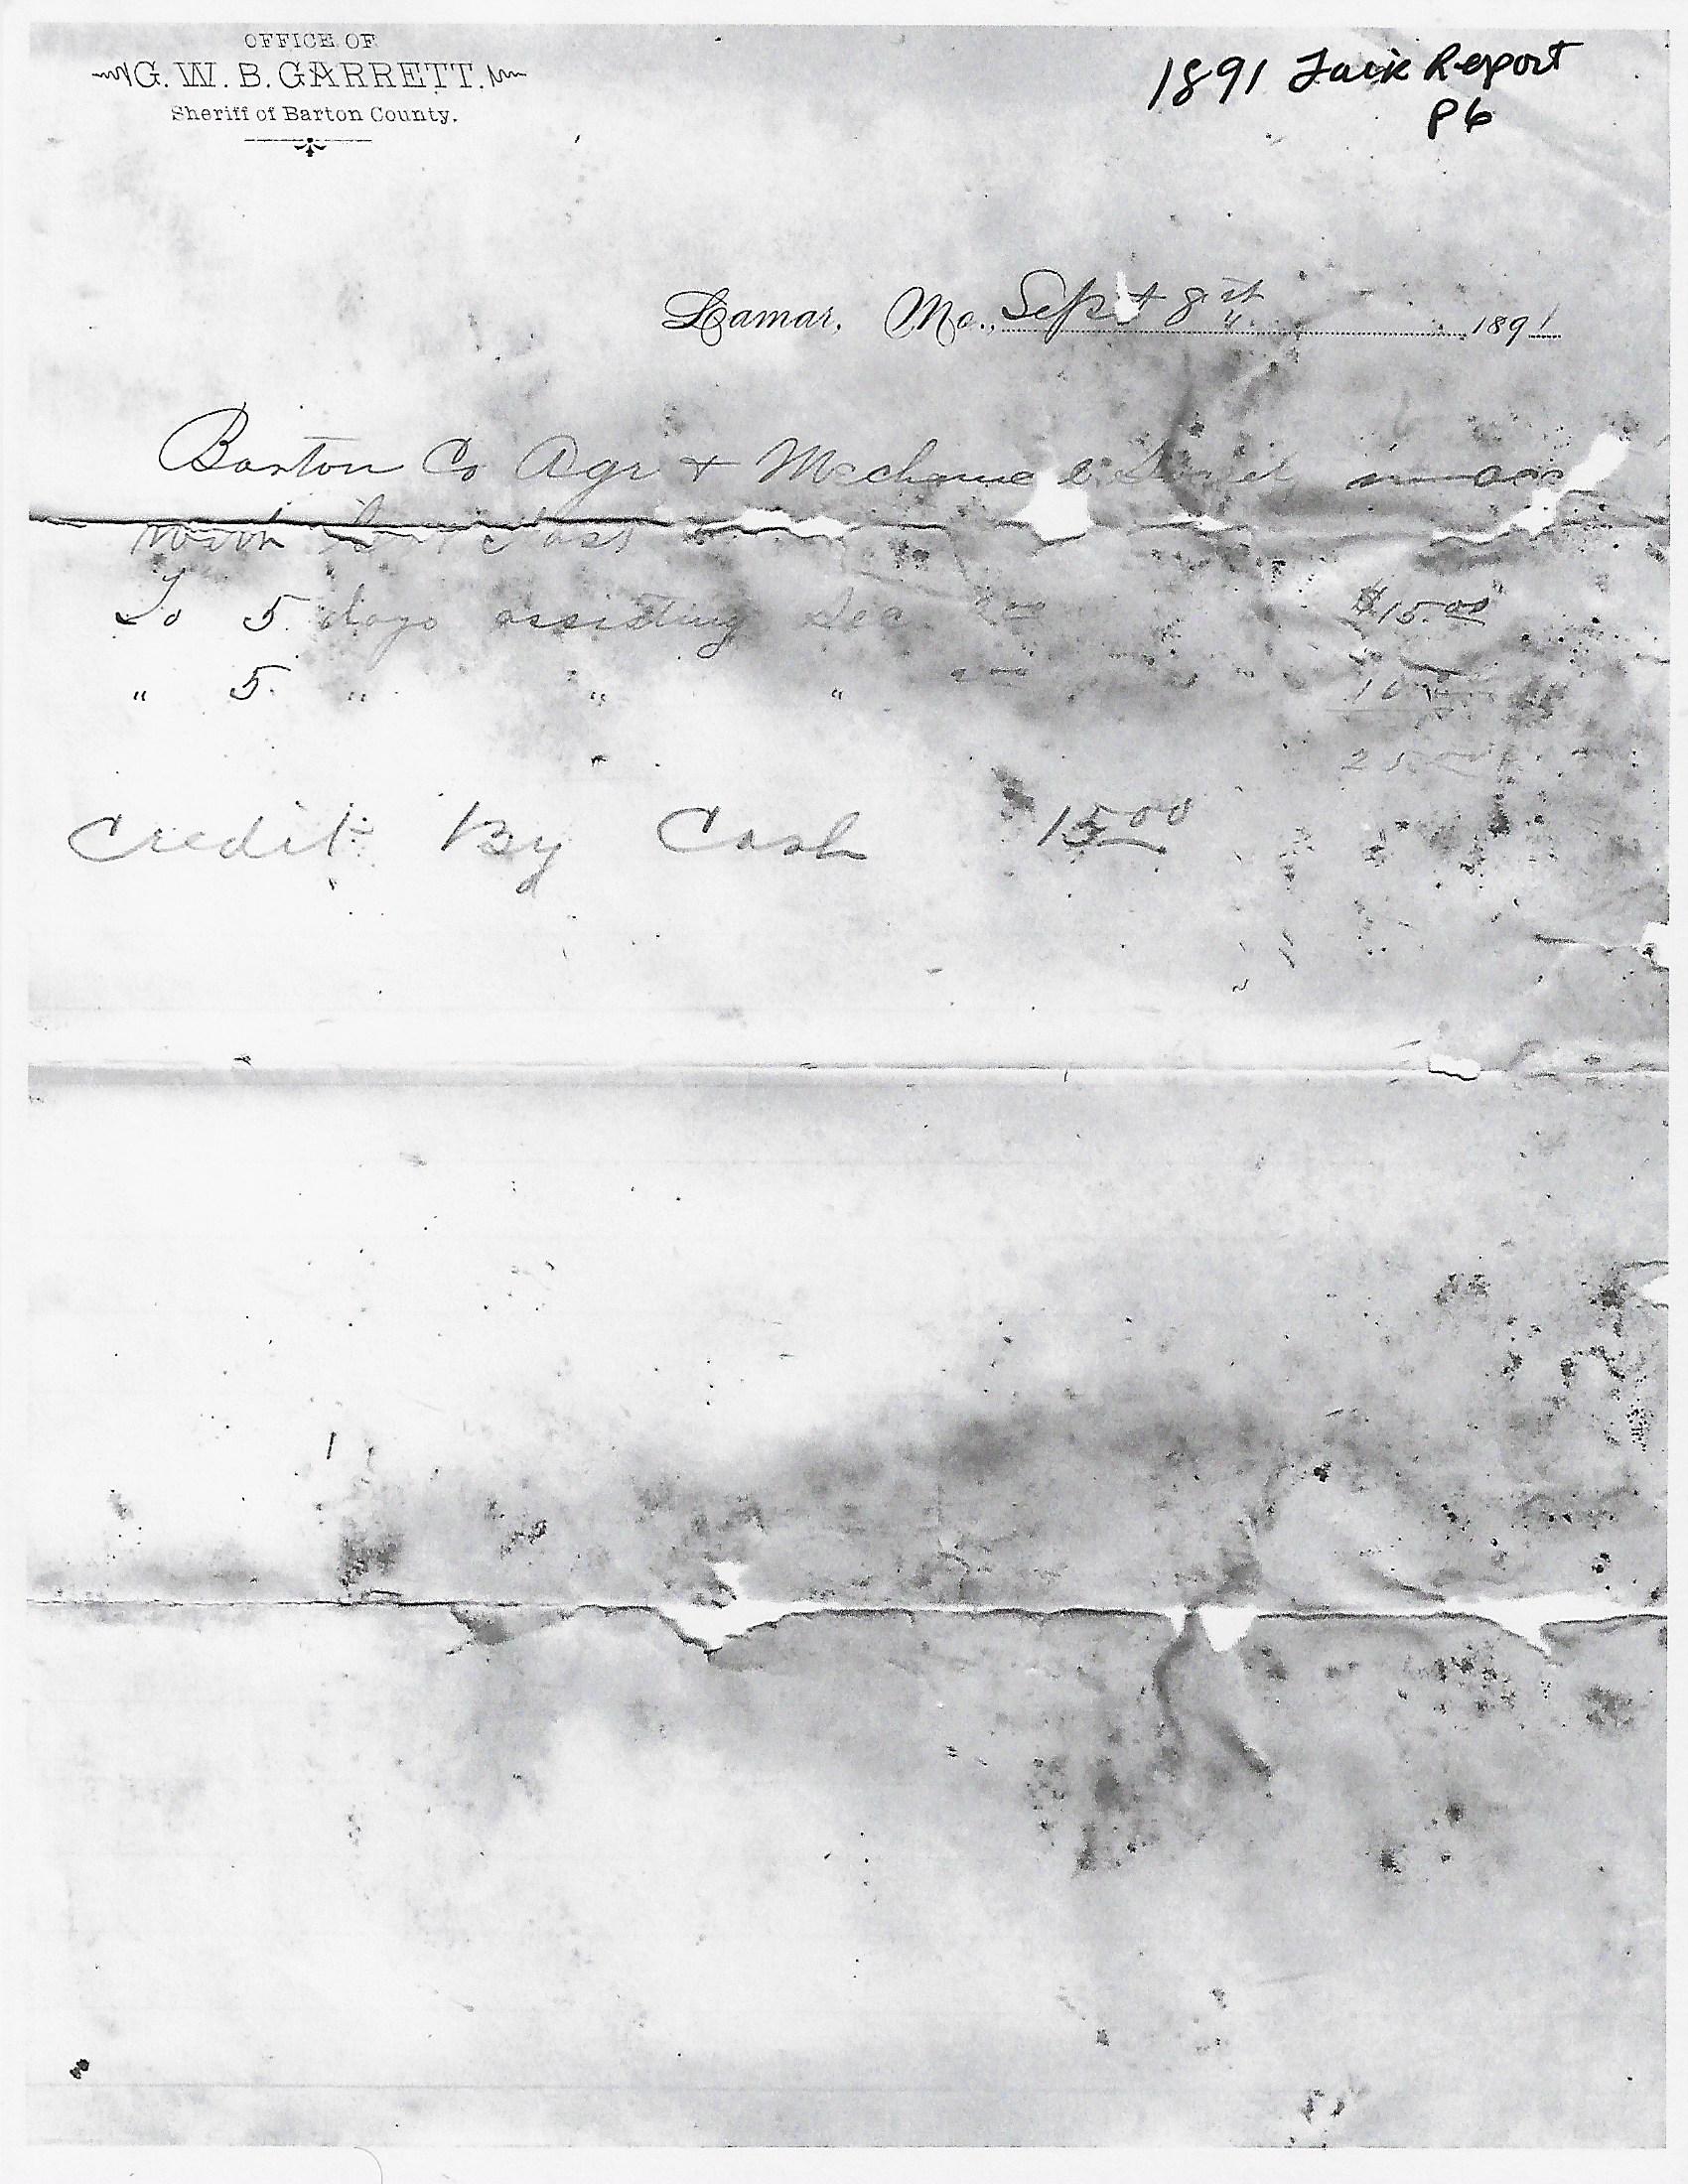 OFFICE OF
G. W. B. GARRETT.
Sheriff of Barton County.
1891 Fair Report
P6
Lamar, Mo., Sept 8th 1891
Barton Co Agr + Mechanical in acc
with
To 5 days assisting Sec 3 00 $15.00
" 5 " " " 2 00 10
25
Credit By Cash 15 00